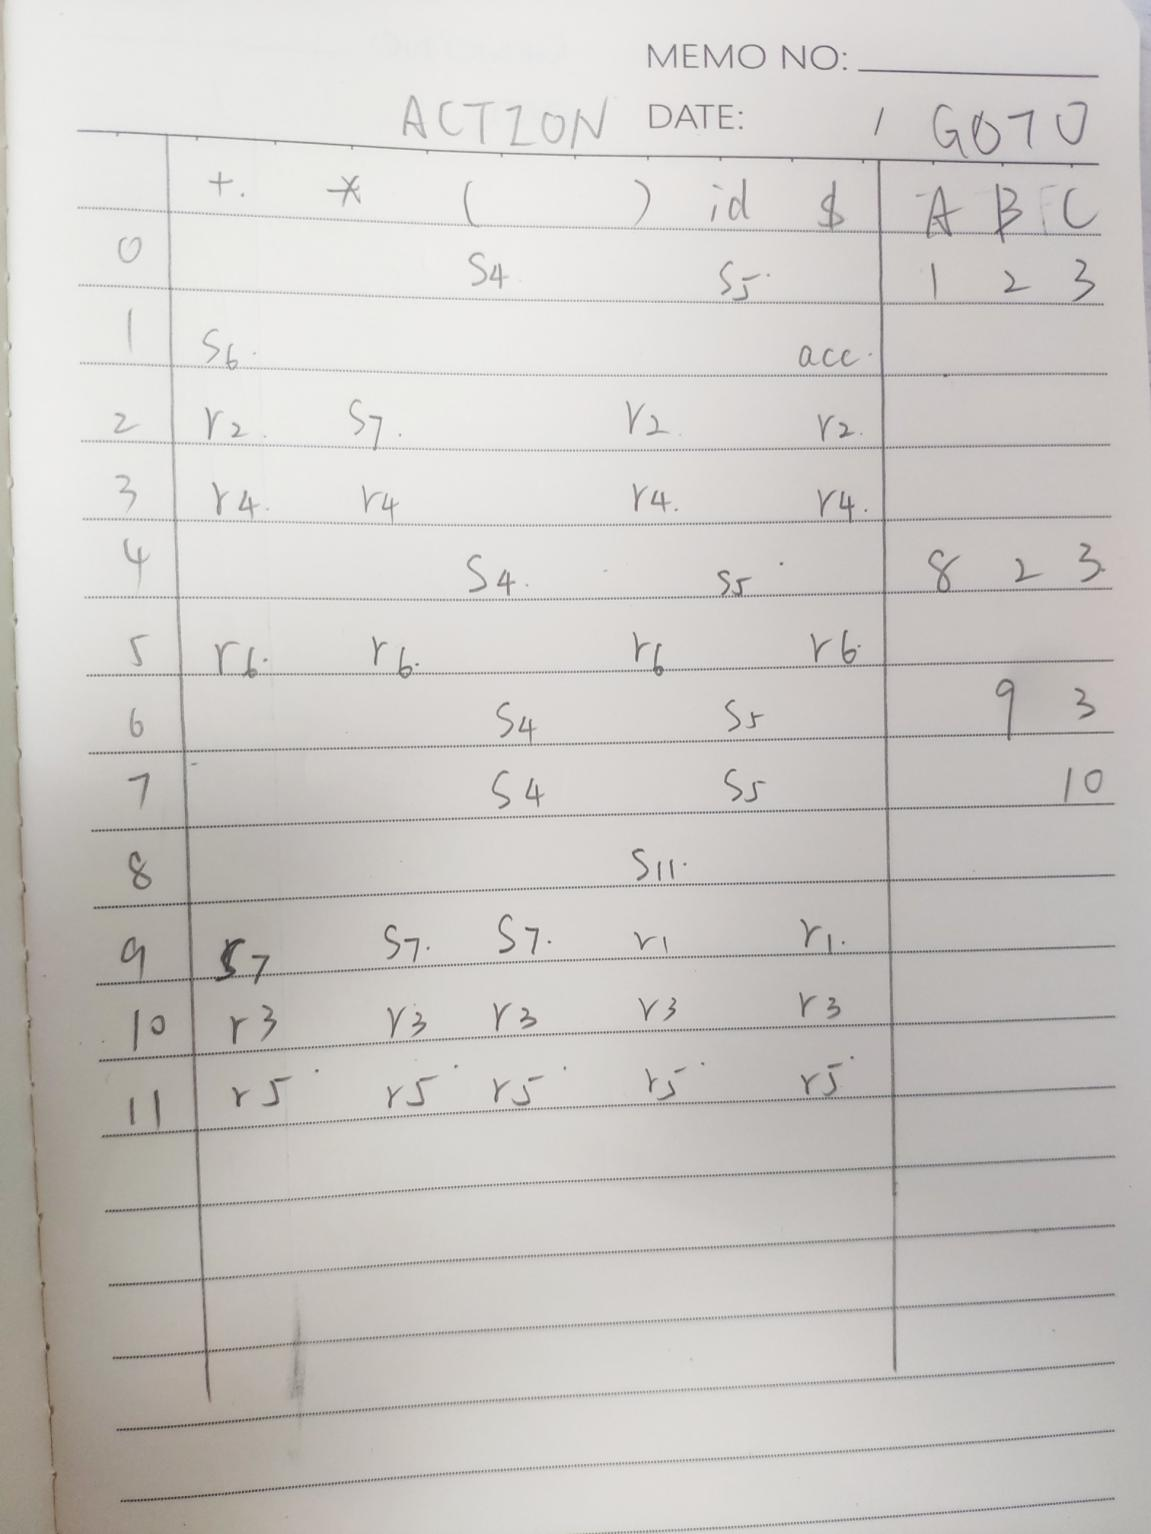 MEMO NO:
ACTION DATE: / GOTO
+. * ( ) id $ A B C
0 S4 S5 1 2 3
1 S6. acc.
2 r2. S7. r2. r2.
3 r4. r4 r4. r4.
4 S4. S5 8 2 3
5 r6. r6. r6 r6.
6 S4 S5 9 3
7 S4 S5 10
8 S11.
9 S7 S7. S7. r1 r1.
10 r3 r3 r3 r3 r3
11 r5 r5 r5 r5 r5